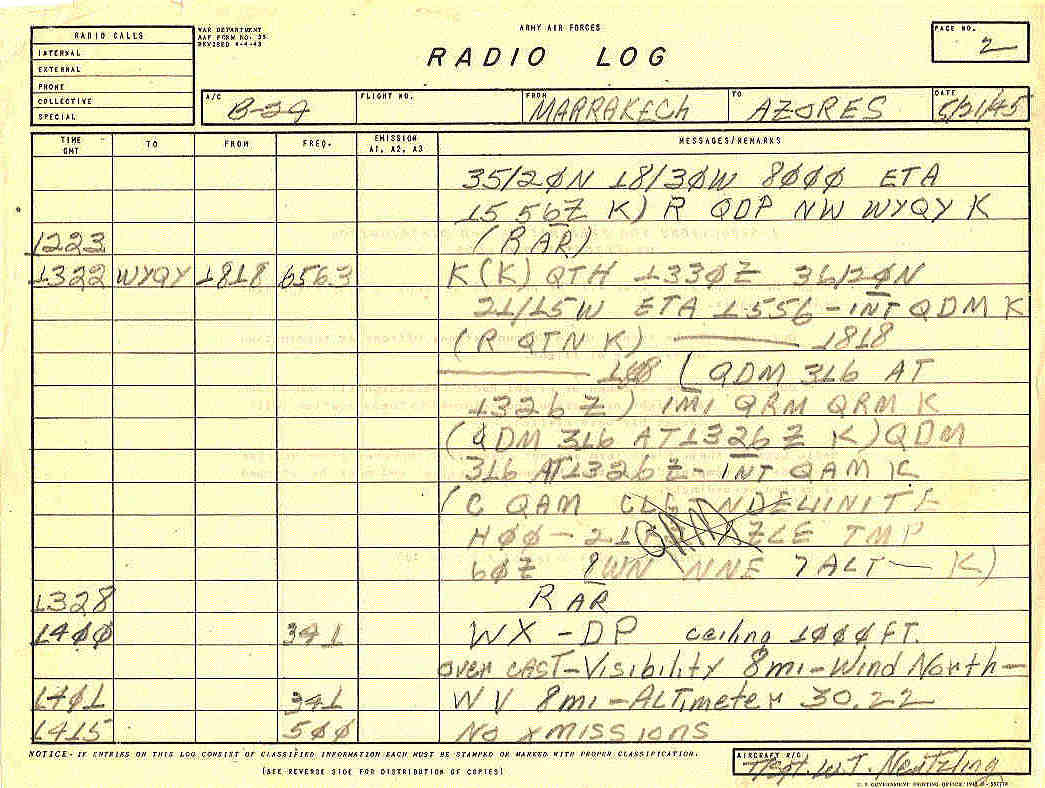 RADIO CALLS
INTERNAL
EXTERNAL
PHONE
COLLECTIVE
SPECIAL
WAR DEPARTMENT
AAF FORM NO. 35
REVISED 4-4-43
ARMY AIR FORCES
RADIO LOG
PAGE NO.
2
A/C B-24 FLIGHT NO. FROM MARRAKECh TO AZORES DATE 5/21/45
TIME GMT TO FROM FREQ. EMISSION A1, A2, A3 MESSAGES/REMARKS
35/2ØN 18/3ØW 8ØØØ ETA
1556Z K) R QDP NW WYQY K
1223 (R AR)
1322 WYQY 1818 6563 K (K) QTH 133ØZ 36/2ØN
21/15W ETA 1556 - INT QDM K
(R QTN K) 1818
(QDM 316 AT
1326Z) IMI QRM QRM K
(QDM 316 AT 1326Z K) QDM
316 AT 1326Z - INT QAM K
(C QAM
HØØ - TMP
6ØZ NNE 7 ALT — K)
1328 R AR
14ØØ 341 WX - DP ceiling 1ØØØ FT.
over cAST - Visibility 8mi - Wind North -
14Ø1 341 WV 8mi - ALTimeter 30.22
1415 5ØØ No xmissions
NOTICE- IF ENTRIES ON THIS LOG CONSIST OF CLASSIFIED INFORMATION EACH MUST BE STAMPED OR MARKED WITH PROPER CLASSIFICATION.
(SEE REVERSE SIDE FOR DISTRIBUTION OF COPIES)
AIRCRAFT R/O: T/Sgt. W.T. Neutzling
U. S. GOVERNMENT PRINTING OFFICE